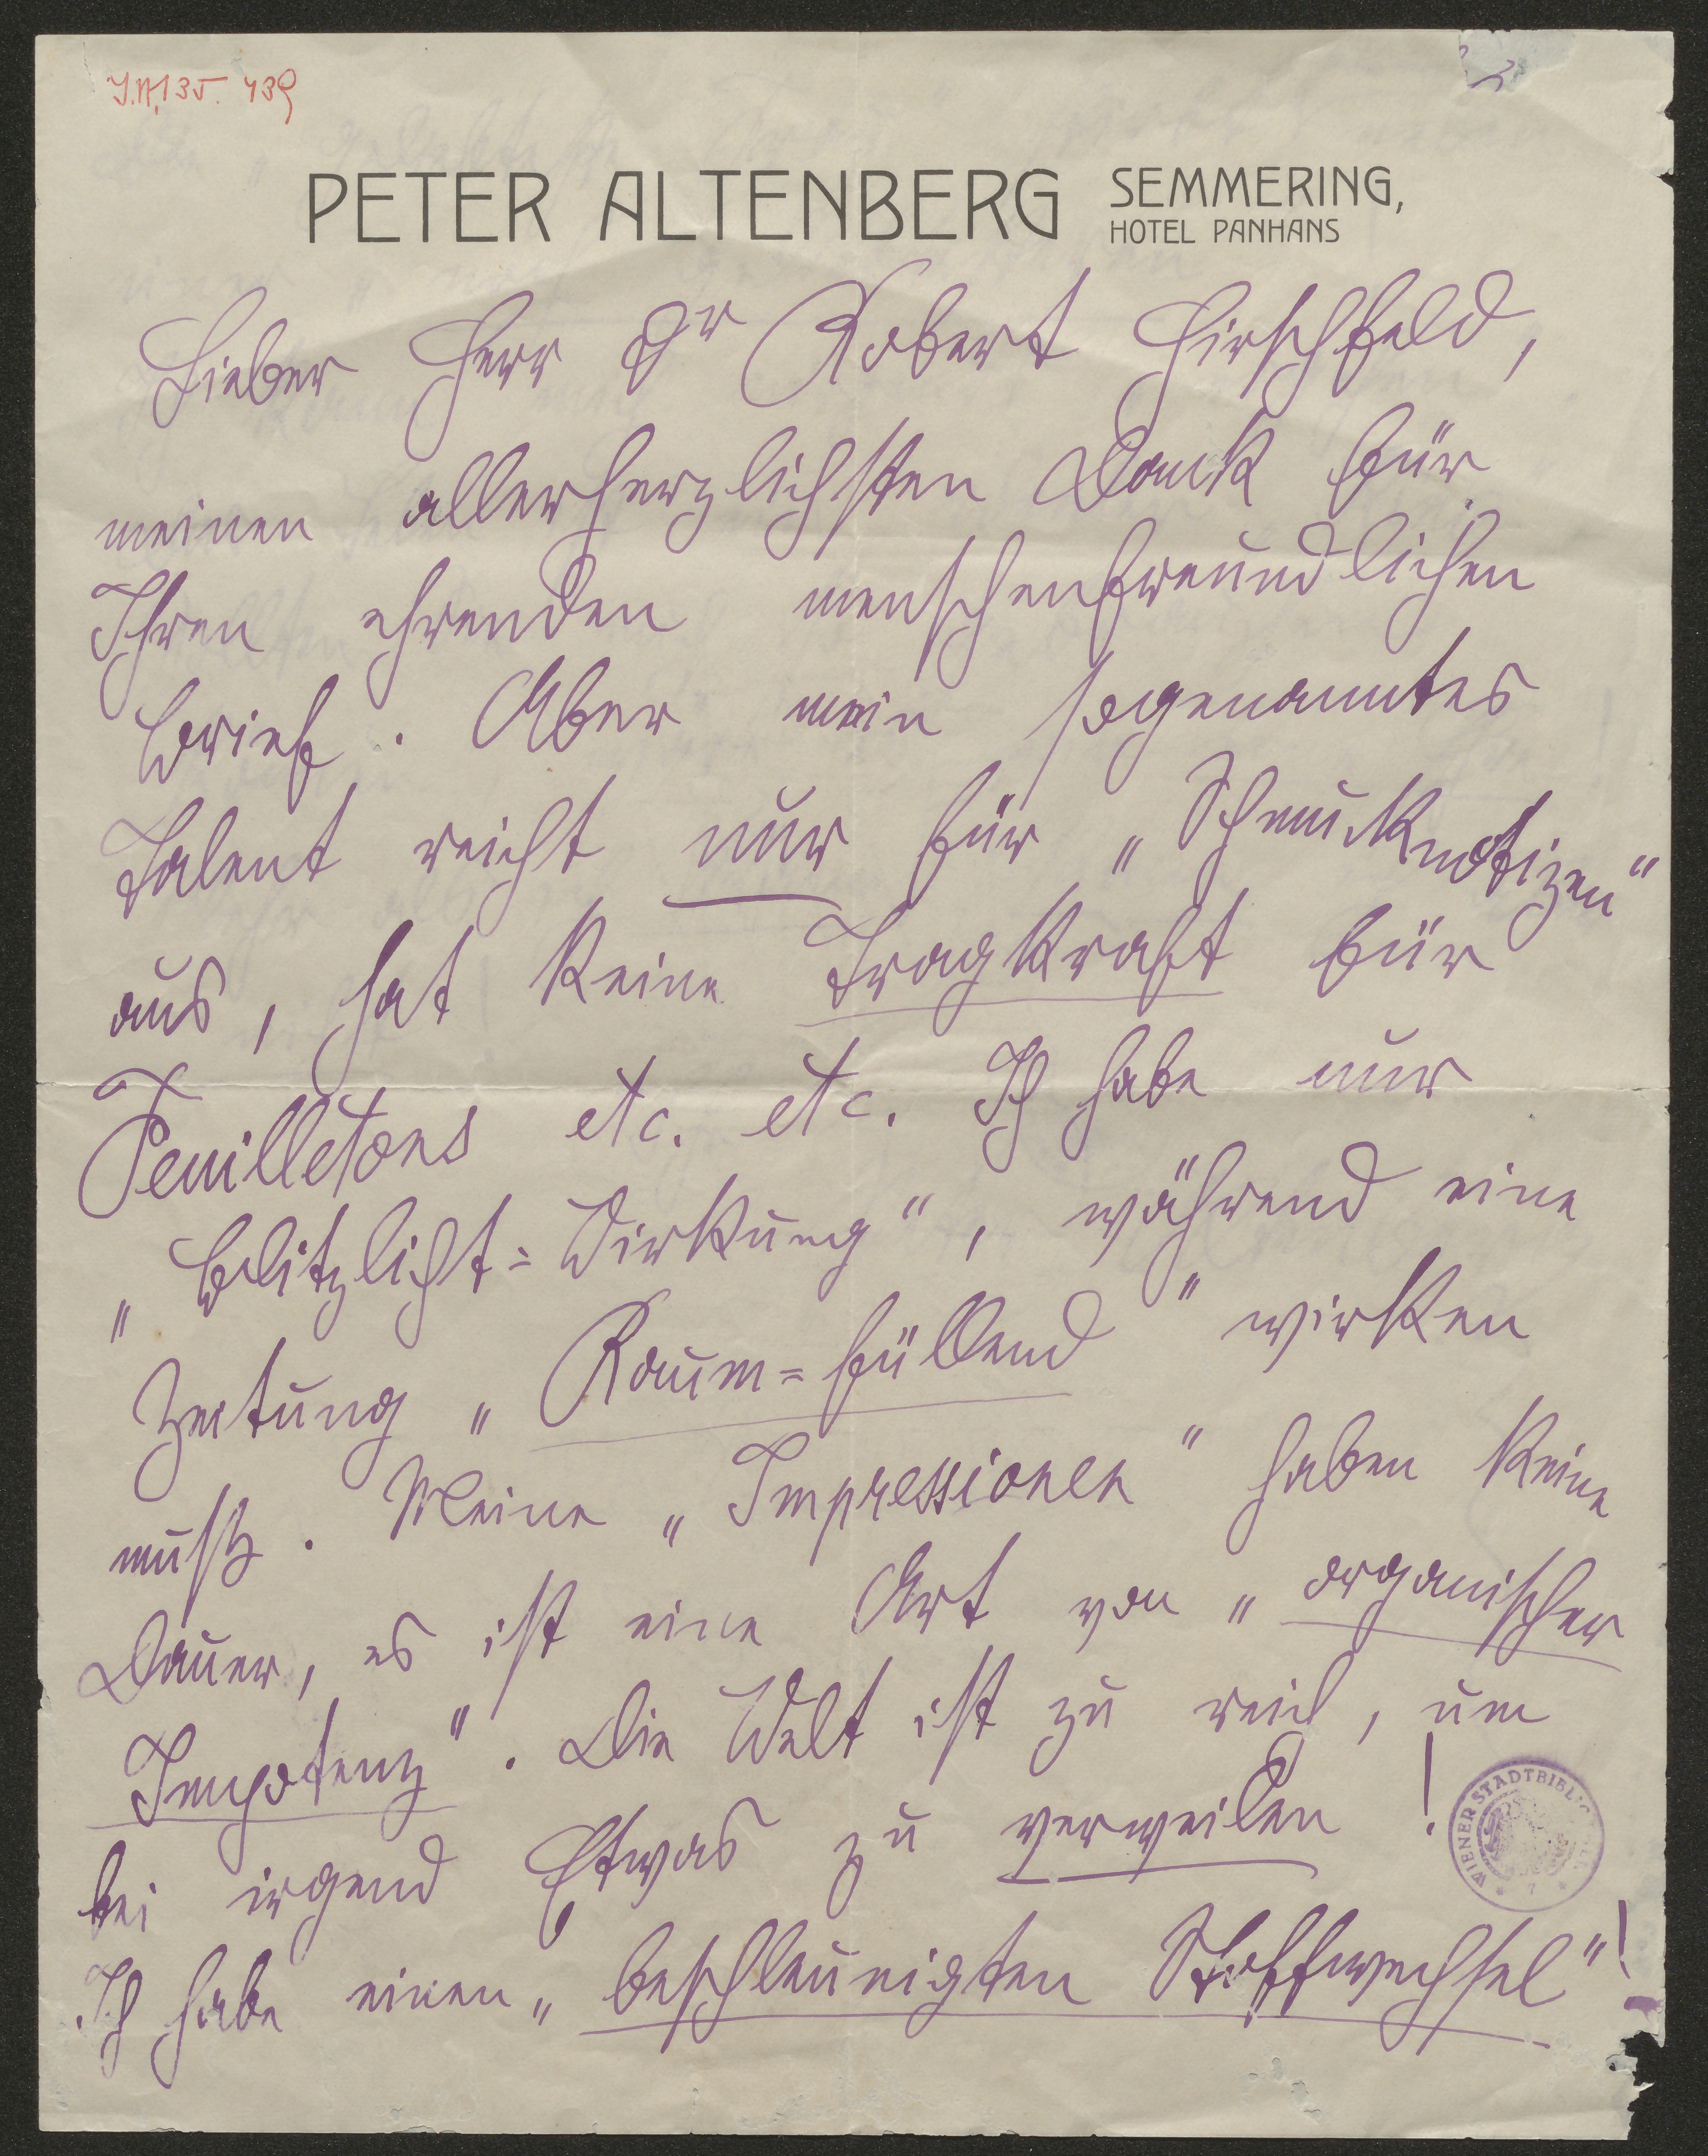 J.N. 135.439
PETER ALTENBERG SEMMERING,
HOTEL PANHANS
Lieber Herr Dr Robert Hirschfeld,
meinen allerherzlichsten Dank für
Ihren ehrenden menschenfreundlichen
Brief. Aber mein sogenanntes
Talent reicht nur für „Schmucknotizen"
aus, hat keine Tragkraft für
Feuilletons etc. etc. Ich habe nur
„Blitzlicht=Wirkung", während eine
Zeitung „Raum=füllend" wirken
muß. Meine „Impressionen" haben keine
Dauer, es ist eine Art von „organischer
Impotenz". Die Welt ist zu reich, um
bei irgend Etwas zu verweilen!
Ich habe einen „beschleunigten Stoffwechsel"!
WIENER STADTBIBLIOTHEK
* 7 *